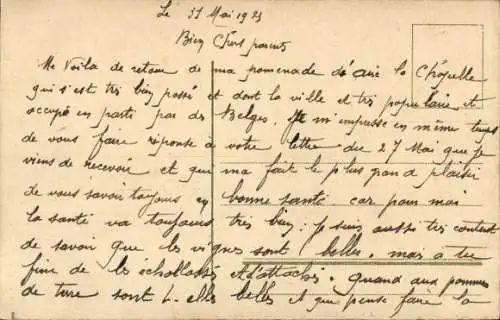 Le 31 Mai 1921
Bien Chers parents
Me Voila de retour de ma promenade d'aix la Chapelle
qui s'est très bien passé et dont la ville et très populaire et
occupé en parti par des Belges. Je m'empresse en même temps
de vous faire réponse a votre lettre du 27 Mai que je
viens de recevoir et qui ma fait le plus grand plaisir
de vous savoir toujours en bonne santé car pour moi
la santé va toujours très bien; je suis aussi très content
de savoir que les vignes sont belles, mais a tu
fini de les et d'attacher. Quand aux pommes
de terre sont t-elles belles et que pense faire la